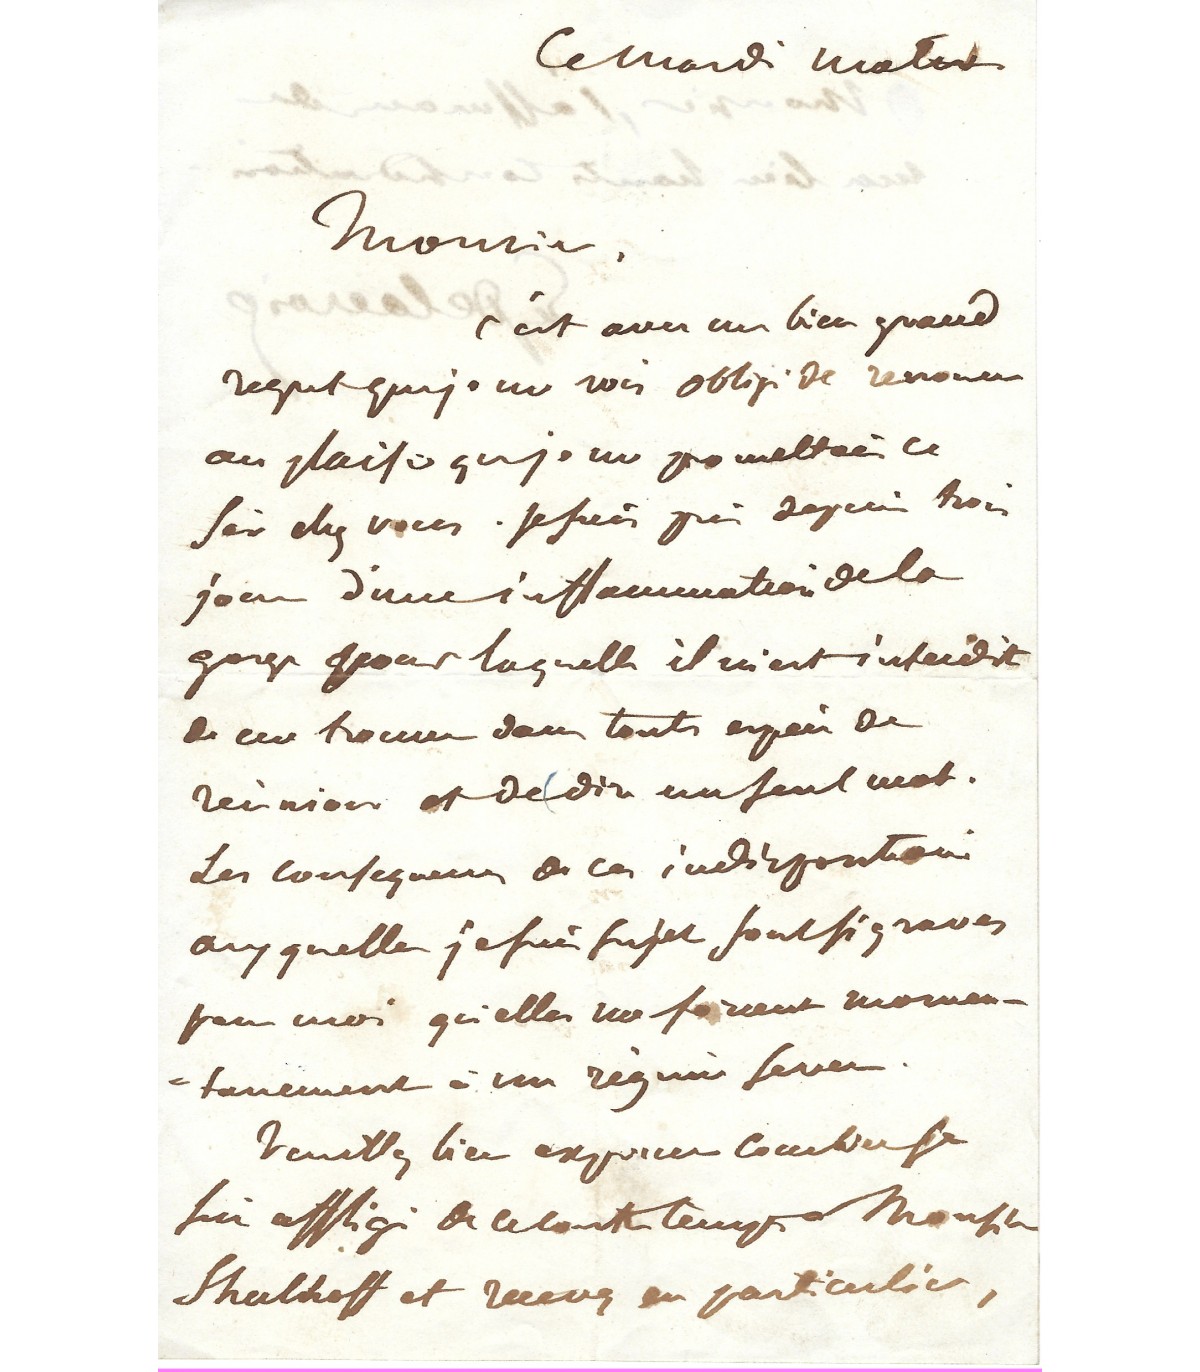 Ce Mardi matin
Monsieur,
C'est avec un bien grand
regret que je me vois obligé de renoncer
au plaisir que je me promettais ce
soir chez vous. Je suis pris depuis trois
jours d'une inflammation de la
gorge pour laquelle il m'est interdit
de me trouver dans toute espèce de
réunion et de dire un seul mot.
Les conséquences de ces indispositions
auxquelles je suis sujet sont si graves
pour moi qu'elles me forcent momen-
-tanément à un régime sévère.
Veuillez bien exprimer combien je
suis affligé de ce contretemps à Monsieur
Shulhoff et recevez en particulier,
Monsieur, l'assurance de
ma bien haute considération
E Delacroix